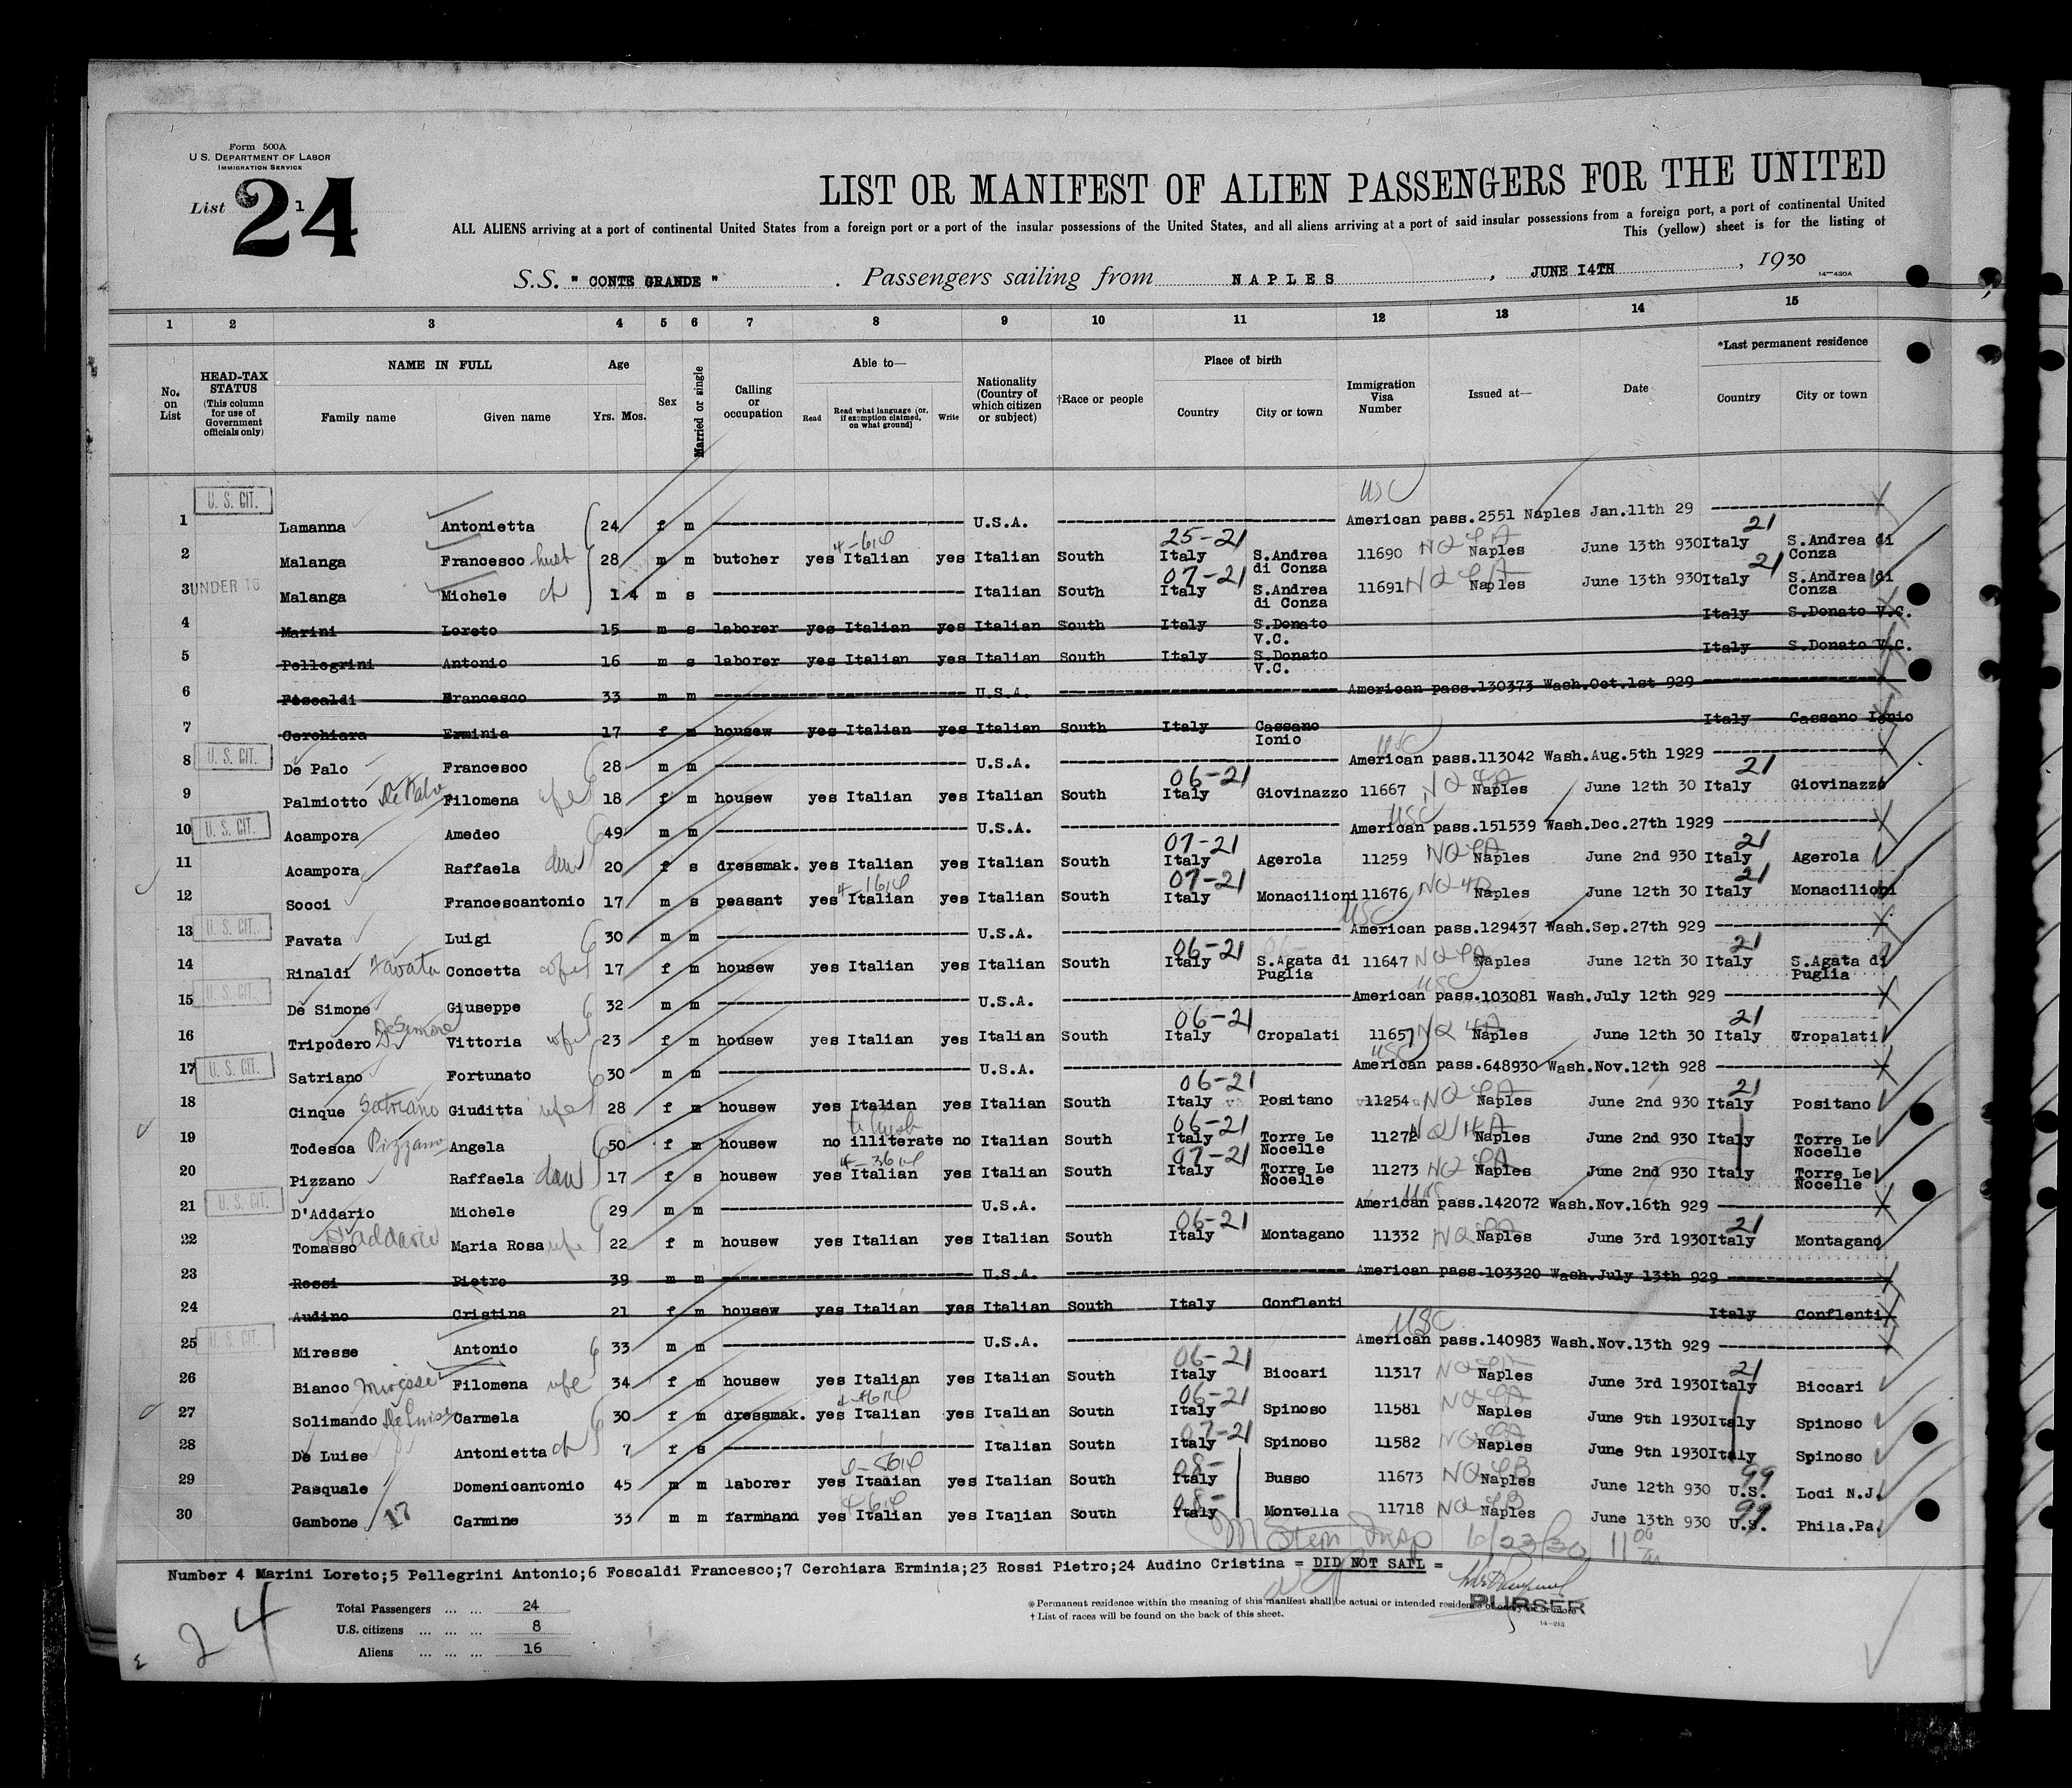 Form 500A
U.S. DEPARTMENT OF LABOR
IMMIGRATION SERVICE
List 1
24
LIST OR MANIFEST OF ALIEN PASSENGERS FOR THE UNITED
ALL ALIENS arriving at a port of continental United States from a foreign port or a port of the insular possessions of the United States, and all aliens arriving at a port of said insular possessions from a foreign port, a port of continental United
This (yellow) sheet is for the listing of
S.S. " CONTE GRANDE " . Passengers sailing from NAPLES , JUNE 14TH , 1930
14—430A
1 2 3 4 5 6 7 8 9 10 11 12 13 14 15
No. on List
HEAD-TAX STATUS (This column for use of Government officials only)
NAME IN FULL
Family name Given name
Age
Yrs. Mos.
Sex
Married or single
Calling or occupation
Able to—
Read Read what language [or, if exemption claimed, on what ground] Write
Nationality (Country of which citizen or subject)
†Race or people
Place of birth
Country City or town
Immigration Visa Number
Issued at—
Date
*Last permanent residence
Country City or town
1 U. S. CIT. Lamanna Antonietta 24 f m U.S.A. USC American pass.2551 Naples Jan.11th 29
2 Malanga Francesco husb 28 m m butcher yes Italian yes Italian South 25-21 Italy S.Andrea di Conza 11690 Naples June 13th 930 Italy 21 S.Andrea di Conza
3 UNDER 16 Malanga Michele ch 1 4 m s Italian South 07-21 Italy S.Andrea di Conza 11691 Naples June 13th 930 Italy 21 S.Andrea di Conza
4 Marini Loreto 15 m s laborer yes Italian yes Italian South Italy S.Donato V.C. Italy S.Donato V.C.
5 Pellegrini Antonio 16 m s laborer yes Italian yes Italian South Italy S.Donato V.C. Italy S.Donato V.C.
6 Foscaldi Francesco 33 m m U.S.A. American pass.130373 Wash.Oct.1st 929
7 Cerchiara Erminia 17 f m housew yes Italian yes Italian South Italy Cassano Ionio Italy Cassano Ionio
8 U. S. CIT. De Palo Francesco 28 m m U.S.A. USC American pass.113042 Wash.Aug.5th 1929
9 Palmiotto De Palo Filomena wfe 18 f m housew yes Italian yes Italian South 06-21 Italy Giovinazzo 11667 Naples June 12th 30 Italy 21 Giovinazzo
10 U. S. CIT. Acampora Amedeo 49 m m U.S.A. USC American pass.151539 Wash.Dec.27th 1929
11 Acampora Raffaela dau 20 f s dressmak. yes Italian yes Italian South 07-21 Italy Agerola 11259 Naples June 2nd 930 Italy 21 Agerola
12 Socci Francescantonio 17 m s peasant yes Italian yes Italian South 07-21 Italy Monacilioni 11676 Naples June 12th 30 Italy 21 Monacilioni
13 U. S. CIT. Favata Luigi 30 m m U.S.A. USC American pass.129437 Wash.Sep.27th 929
14 Rinaldi Favata Concetta wfe 17 f m housew yes Italian yes Italian South 06-21 Italy S.Agata di Puglia 11647 Naples June 12th 30 Italy 21 S.Agata di Puglia
15 U. S. CIT. De Simone Giuseppe 32 m m U.S.A. USC American pass.103081 Wash.July 12th 929
16 Tripodero De Simone Vittoria wfe 23 f m housew yes Italian yes Italian South 06-21 Italy Cropalati 11657 Naples June 12th 30 Italy 21 Cropalati
17 U. S. CIT. Satriano Fortunato 30 m m U.S.A. USC American pass.648930 Wash.Nov.12th 928
18 Cinque Satriano Giuditta wfe 28 f m housew yes Italian yes Italian South 06-21 Italy Positano 11254 Naples June 2nd 930 Italy 21 Positano
19 Todesca Pizzano Angela 50 f m housew no illiterate no Italian South 06-21 Italy Torre Le Nocelle 11272 Naples June 2nd 930 Italy Torre Le Nocelle
20 Pizzano Raffaela dau 17 f s housew yes Italian yes Italian South 07-21 Italy Torre Le Nocelle 11273 Naples June 2nd 930 Italy Torre Le Nocelle
21 U. S. CIT. D'Addario Michele 29 m m U.S.A. American pass.142072 Wash.Nov.16th 929
22 Tomasso D'addario Maria Rosa wfe 22 f m housew yes Italian yes Italian South 06-21 Italy Montagano 11332 Naples June 3rd 1930 Italy 21 Montagano
23 Rossi Pietro 39 m m U.S.A. American pass.103320 Wash.July 13th 929
24 Audino Cristina 21 f m housew yes Italian yes Italian South Italy Conflenti Italy Conflenti
25 U. S. CIT. Miresse Antonio 33 m m U.S.A. USC American pass.140983 Wash.Nov.13th 929
26 Bianco Miresse Filomena wfe 34 f m housew yes Italian yes Italian South 06-21 Italy Biccari 11317 Naples June 3rd 1930 Italy 21 Biccari
27 Solimando De Luise Carmela 30 f m dressmak. yes Italian yes Italian South 06-21 Italy Spinoso 11581 Naples June 9th 1930 Italy Spinoso
28 De Luise Antonietta ch 7 f s Italian South 07-21 Italy Spinoso 11582 Naples June 9th 1930 Italy Spinoso
29 Pasquale Domenicantonio 45 m m laborer yes Italian yes Italian South 08- Italy Busso 11673 Naples June 12th 930 U.S. 99 Lodi N.J.
30 Gambone 17 Carmine 33 m m farmhand yes Italian yes Italian South 08- Italy Montella 11718 Naples June 13th 930 U.S. 99 Phila.Pa.
M Stein Insp 6/23/30
Number 4 Marini Loreto;5 Pellegrini Antonio;6 Foscaldi Francesco;7 Cerchiara Erminia;23 Rossi Pietro;24 Audino Cristina = DID NOT SAIL =
Total Passengers ... ... 24
U.S. citizens ... ... ... 8
Aliens ... ... ... 16
24
*Permanent residence within the meaning of this manifest shall be actual or intended residence of one year or more
† List of races will be found on the back of this sheet.
PURSER
14—213